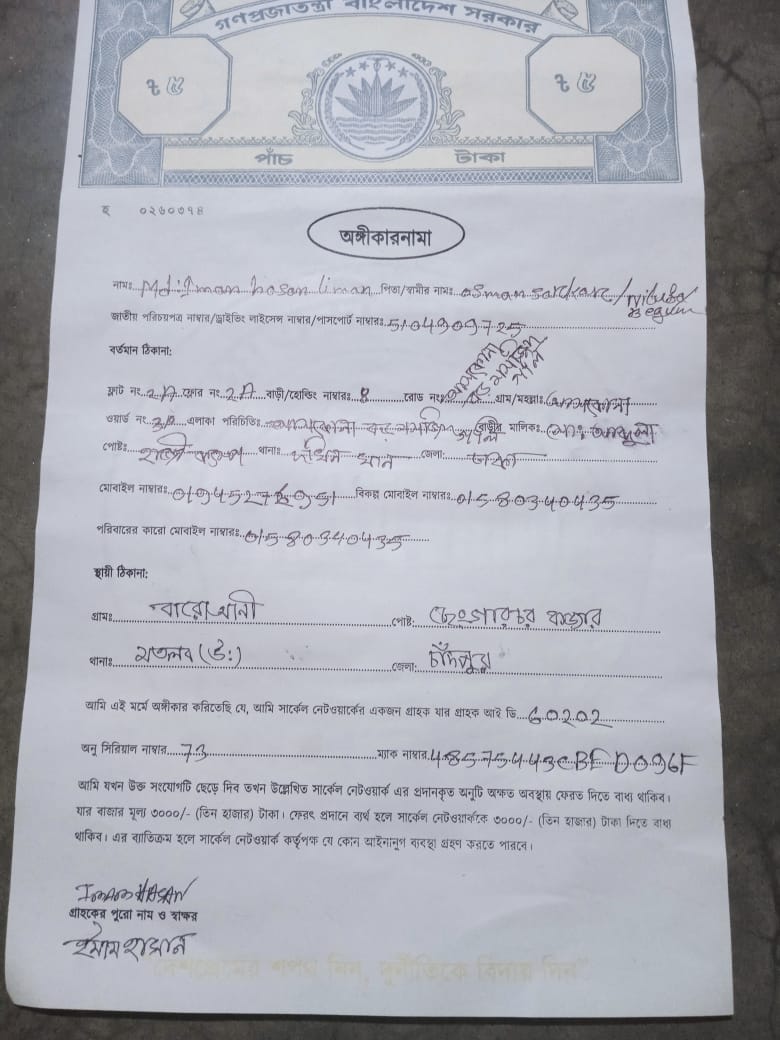 গণপ্রজাতন্ত্রী বাংলাদেশ সরকার
৳ ৫ ৳ ৫
পাঁচ টাকা
হ ০২৬০৩৭৪
অঙ্গীকারনামা
নামঃ Md: Iman hosan liman পিতা/স্বামীর নামঃ osman sarkare/
Begum
জাতীয় পরিচয়পত্র নাম্বার/ড্রাইভিং লাইসেন্স নাম্বার/পাসপোর্ট নাম্বারঃ
বর্তমান ঠিকানা:
ফ্লাট নং. 2A ফ্লোর নং. 2A বাড়ী/হোল্ডিং নাম্বারঃ 8 রোড নং গ্রাম/মহল্লাঃ
ওয়ার্ড নং. এলাকা পরিচিতিঃ বাড়ীর মালিকঃ মোঃ
পোষ্টঃ থানাঃ দক্ষিন খান জেলা: ঢাকা
মোবাইল নাম্বারঃ বিকল্প মোবাইল নাম্বারঃ 01580340435
পরিবারের কারো মোবাইল নাম্বারঃ 01580340435
স্থায়ী ঠিকানা:
গ্রামঃ বারোআনী পোষ্ট: ছেংগারচর বাজার
থানাঃ মতলব (উঃ) জেলা: চাঁদপুর
আমি এই মর্মে অঙ্গীকার করিতেছি যে, আমি সার্কেল নেটওয়ার্কের একজন গ্রাহক যার গ্রাহক আই ডি 60202
অনু সিরিয়াল নাম্বার 73 ম্যাক নাম্বার 48575443CBFD096F
আমি যখন উক্ত সংযোগটি ছেড়ে দিব তখন উল্লেখিত সার্কেল নেটওয়ার্ক এর প্রদানকৃত অনুটি অক্ষত অবস্থায় ফেরত দিতে বাধ্য থাকিব।
যার বাজার মূল্য ৩০০০/- (তিন হাজার) টাকা। ফেরৎ প্রদানে ব্যর্থ হলে সার্কেল নেটওয়ার্ককে ৩০০০/- (তিন হাজার) টাকা দিতে বাধ্য
থাকিব। এর ব্যতিক্রম হলে সার্কেল নেটওয়ার্ক কর্তৃপক্ষ যে কোন আইনানুগ ব্যবস্থা গ্রহণ করতে পারবে।
Imam HASAN
গ্রাহকের পুরো নাম ও স্বাক্ষর
ইমাম হাসান
"দেশপ্রেমের শপথ নিন, দুর্নীতিকে বিদায় দিন"